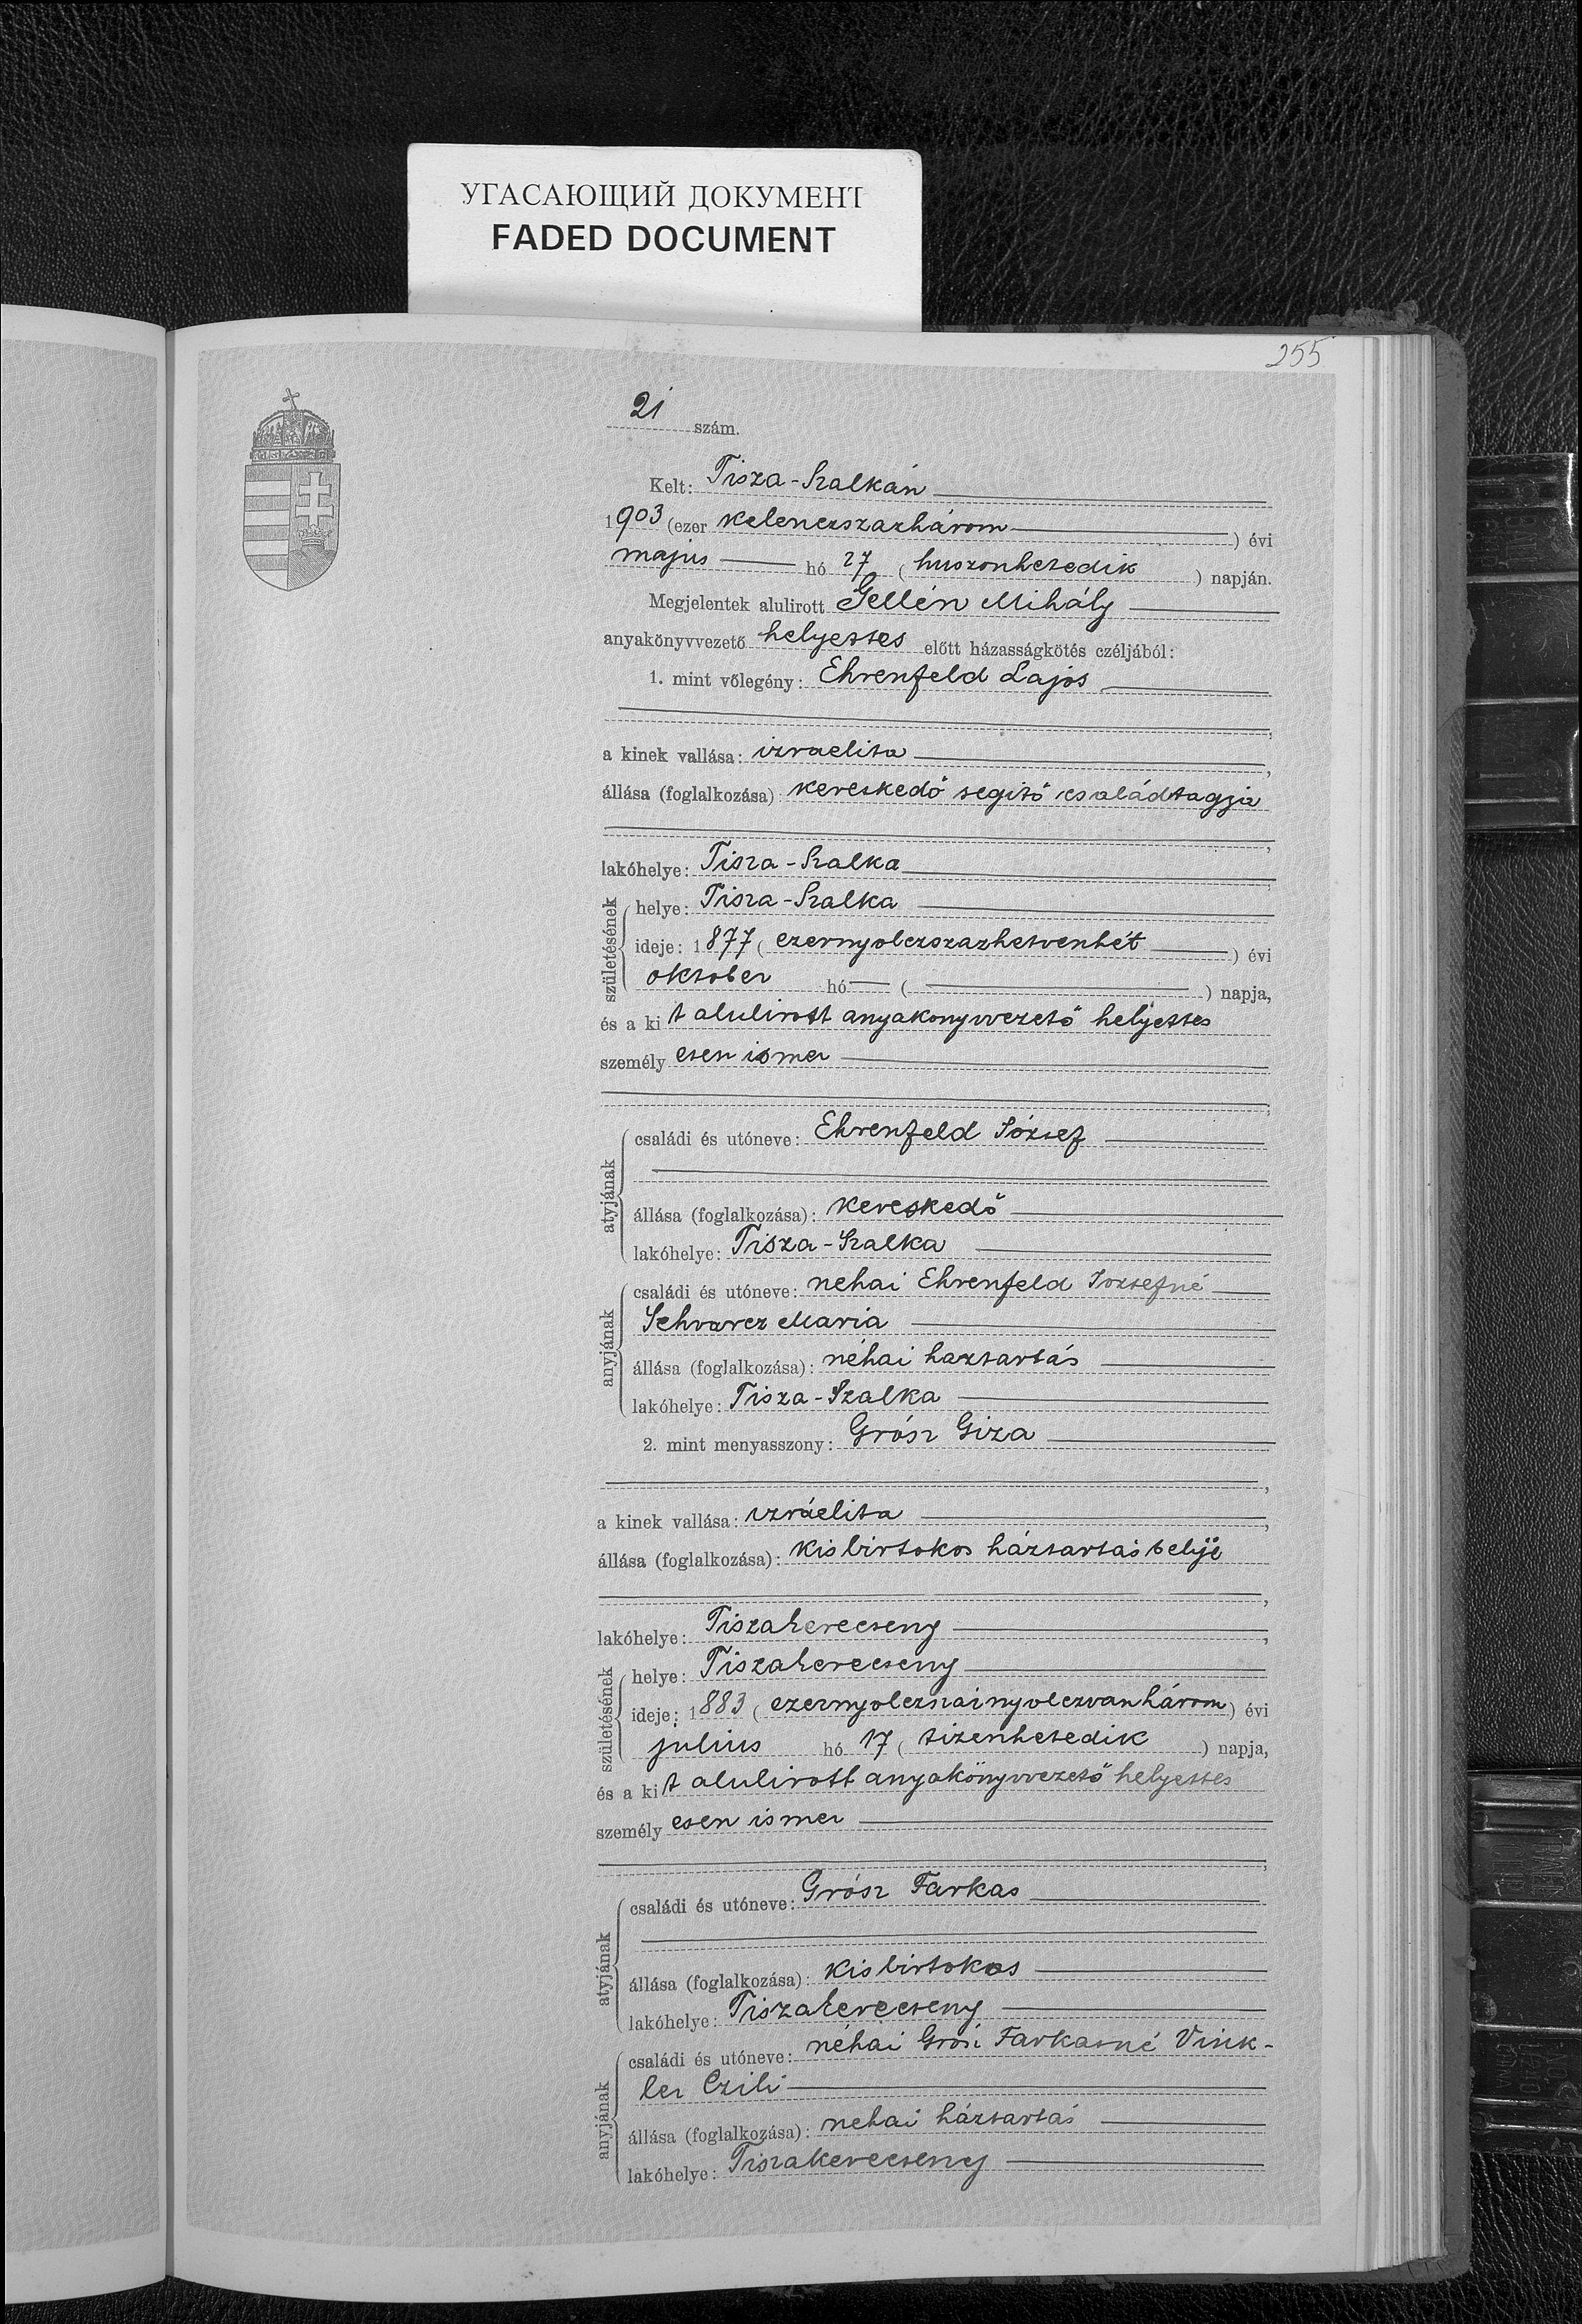 УГАСАЮЩИЙ ДОКУМЕНТ
FADED DOCUMENT
255
21 szám.
Kelt: Tisza-Szalkán
1903 (ezer kelenczszazhárom) évi
majus hó 27 (huszonhetedik) napján.
Megjelentek alulirott Gellén Mihály
anyakönyvvezető helyettes előtt házasságkötés czéljából:
1. mint vőlegény: Ehrenfeld Lajos
a kinek vallása: izraelita,
állása (foglalkozása): kereskedő segitő családtagja
lakóhelye: Tisza-Szalka
születésének
helye: Tisza-Szalka
ideje: 1877 (ezernyolczszazhetvenhét) évi
oktober hó — ( — ) napja,
és a kit alulirott anyakonyvvezető helyettes
személyesen ismer
atyjának
családi és utóneve: Ehrenfeld József
állása (foglalkozása): kereskedő
lakóhelye: Tisza-Szalka
anyjának
családi és utóneve: nehai Ehrenfeld Jozsefné
Schvarcz Maria
állása (foglalkozása): néhai haztartás
lakóhelye: Tisza-Szalka
2. mint menyasszony: Grósz Giza
a kinek vallása: izráelita,
állása (foglalkozása): kisbirtokos háztartásbelije
lakóhelye: Tiszakerecseny,
születésének
helye: Tiszakerecseny
ideje: 1883 (ezernyolczszáznyolczvanhárom) évi
julius hó 17 (tizenhetedik) napja,
és a kit alulirott anyakönyvvezető helyettes
személyesen ismer
atyjának
családi és utóneve: Grósz Farkas
állása (foglalkozása): kisbirtokos
lakóhelye: Tiszakerecseny
anyjának
családi és utóneve: néhai Grósz Farkasné Vink-
ler Czili
állása (foglalkozása): nehai háztartás
lakóhelye: Tiszakerecseny